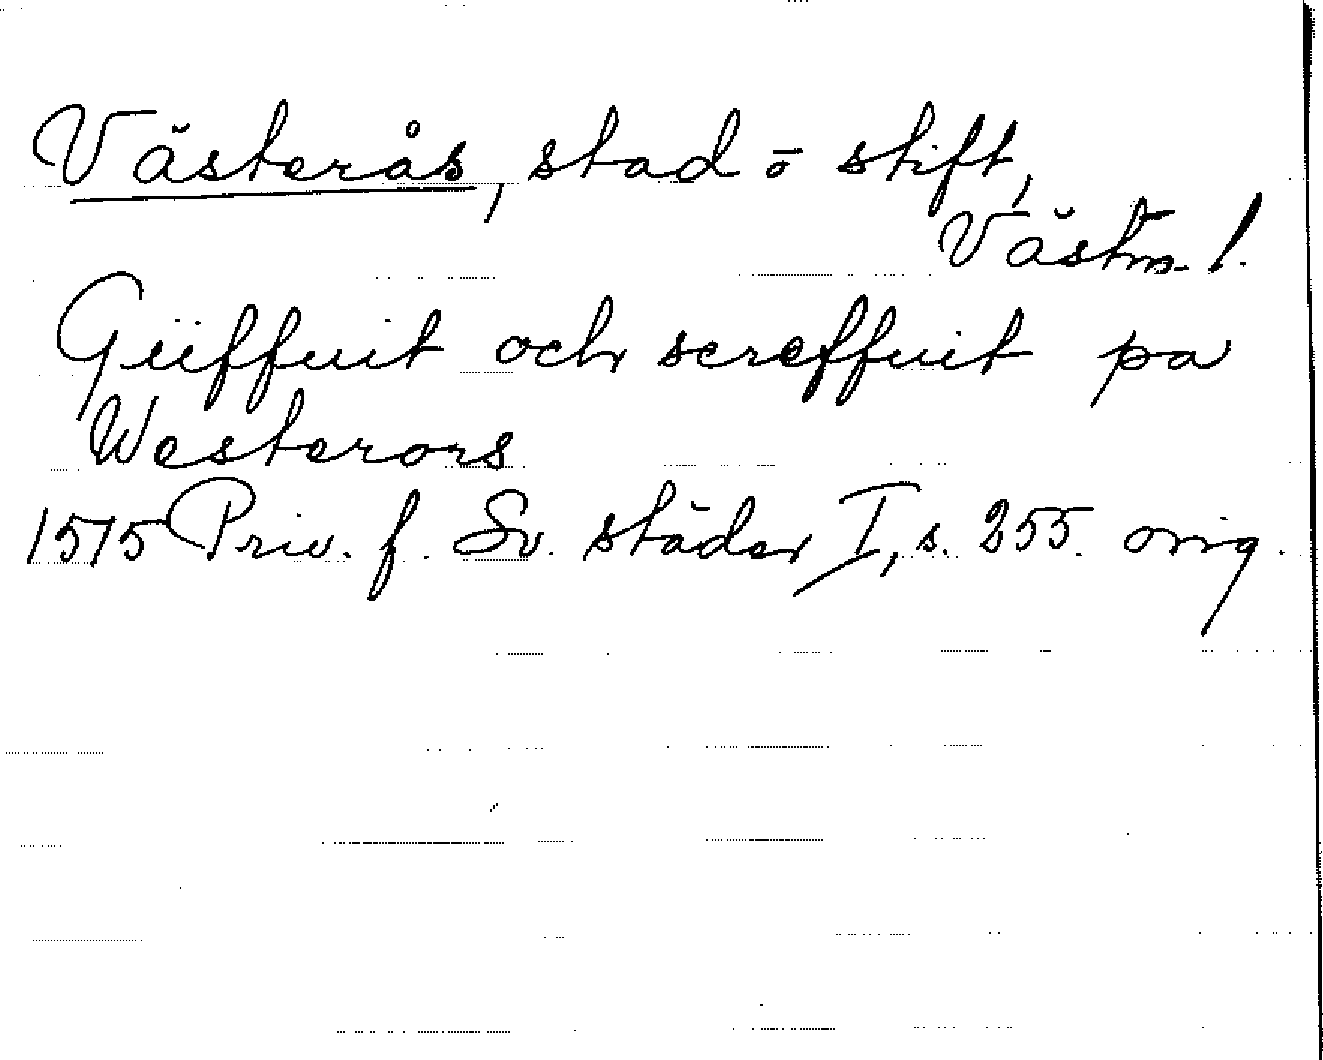 Västerås, stad o stift,
Västm. l.
Giiffuit och screffuit pa
Westerors
1575 Priv. f. Sv. städer I, s. 255. orig.